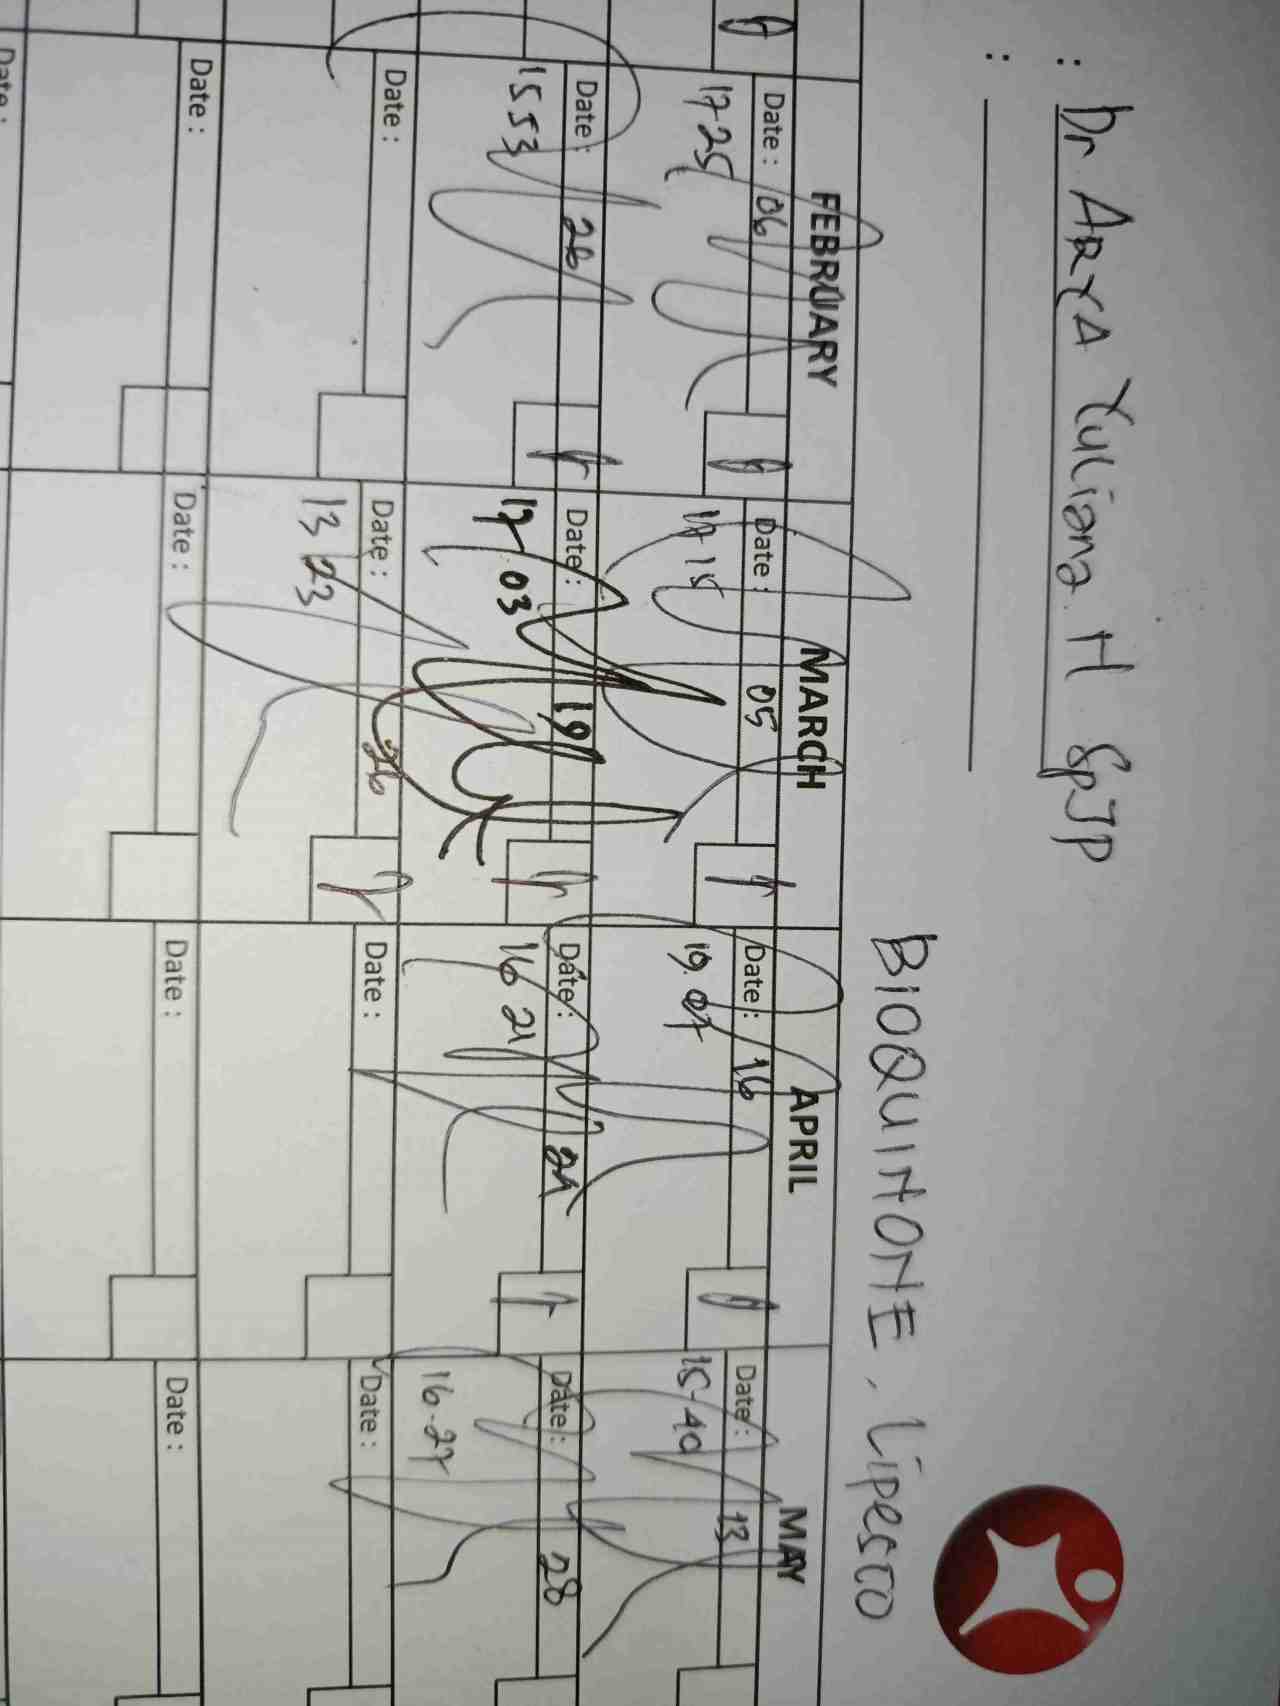 : Dr ARYA Yuliana. H SpJP
:
BIOQUINONE, Lipesco
FEBRUARY MARCH APRIL MAY
Date: 06 Date: 05 Date: 16 Date: 13
17 25 17 15 19.07 15-40
Date: 26 Date: 19 Date: 24 Date: 28
15 53 17.03 16 21 16-27
Date: Date: 26 Date: Date:
13 23
Date: Date: Date: Date:
Date: